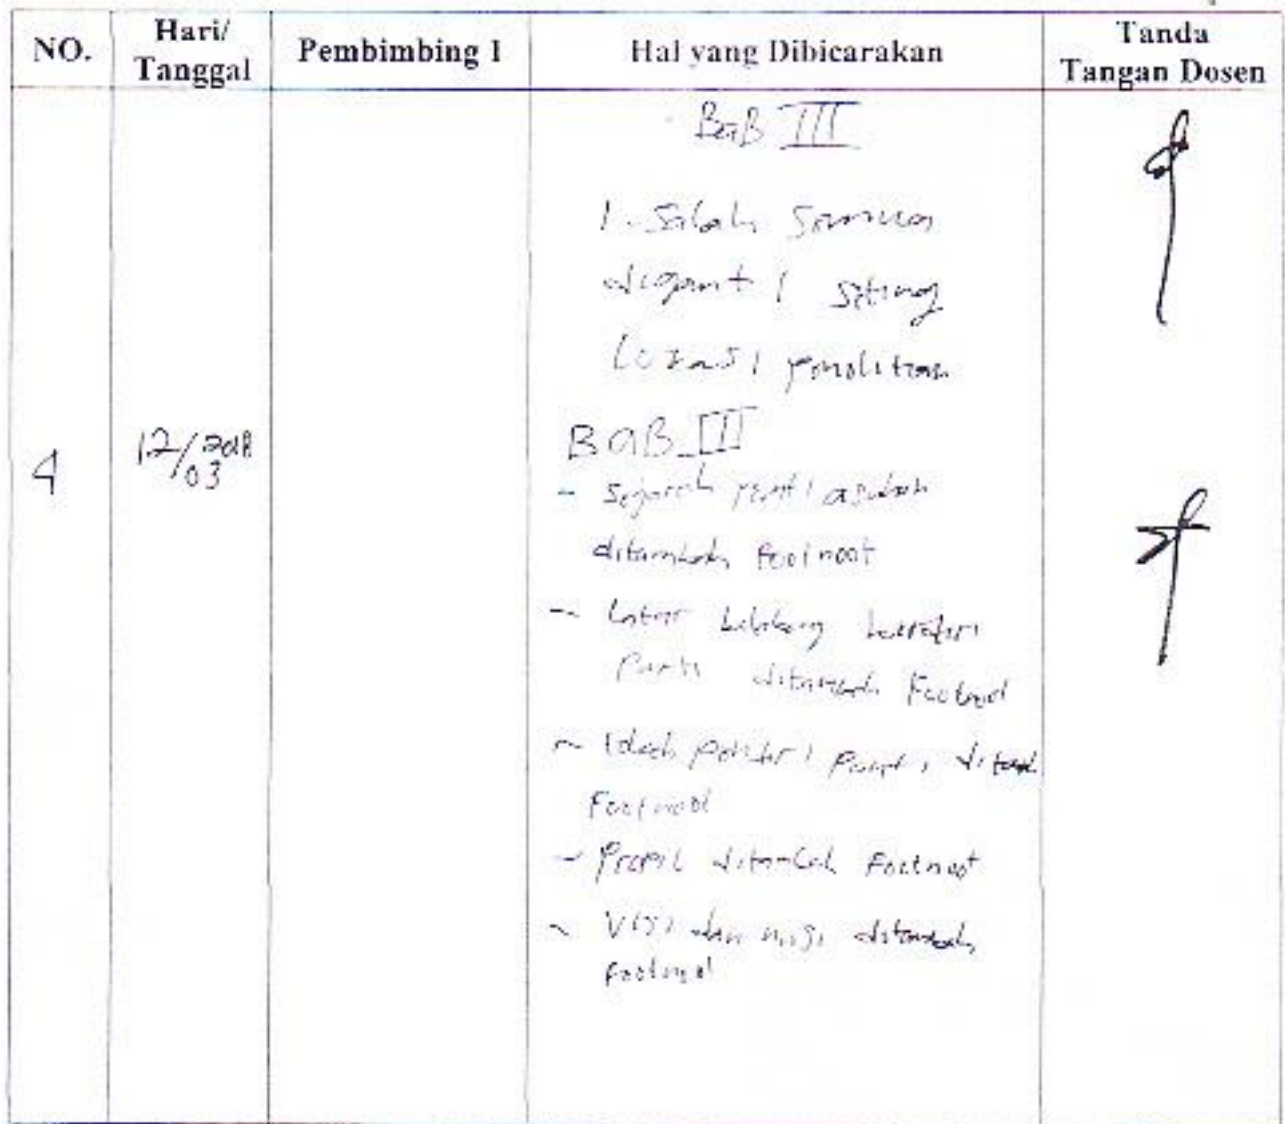 NO.
Hari/
Tanggal
Pembimbing 1
Hal yang Dibicarakan
Tanda
Tangan Dosen
4
12/2018
03
BaB III
1. Salah semua
diganti seting
Lokasi penelitian
BaB III
- Sejarah panti asuhan
ditambah footnoot
- Latar belakang
Panti ditambah Footnoot
- Panti
Footnoot
- Propil ditambah Footnoot
- Visi dan misi ditambah
footnoot